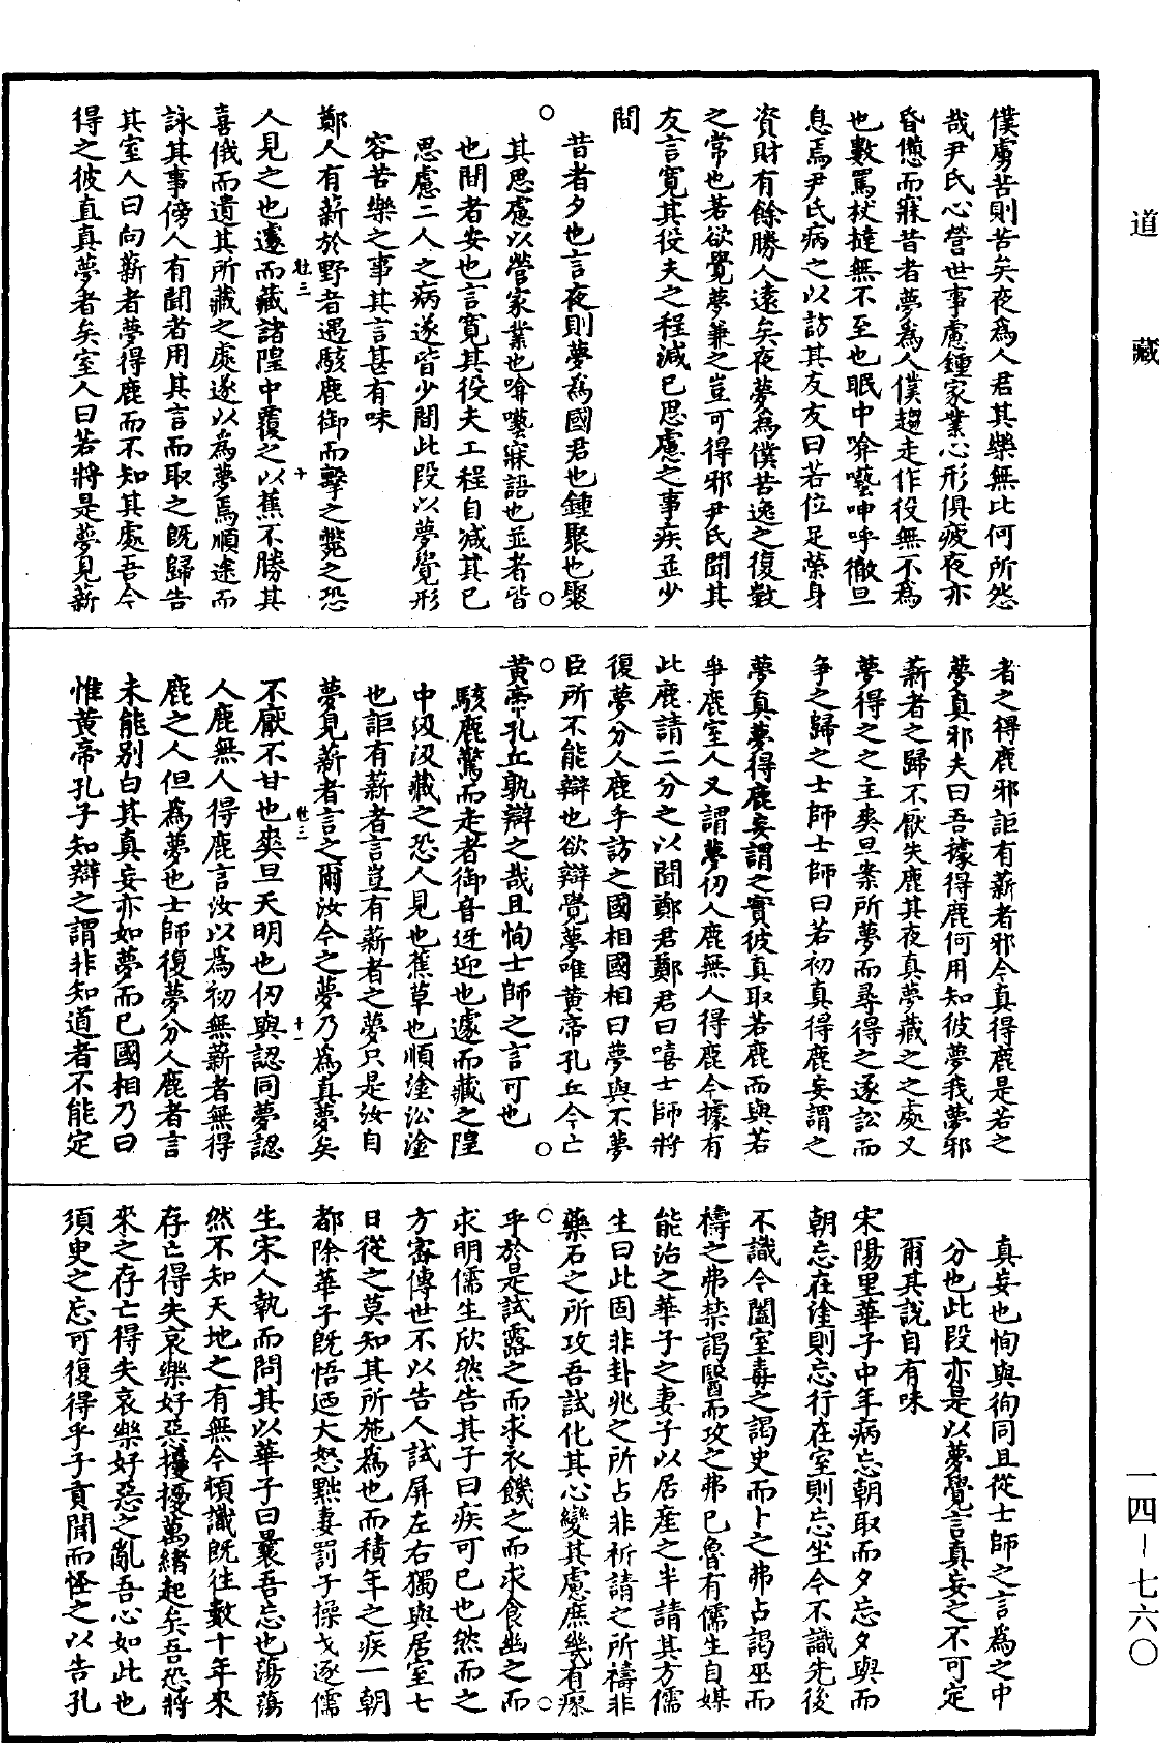 道藏
僕虜苦則苦矣夜為人君其樂無比何所怨
哉尹氏心營世事慮鍾家業心形俱疲夜亦
昏憊而寐昔者夢為人僕趨走作役無不為
也數罵杖撻無不至也眠中啽囈呻呼徹旦
息焉尹氏病之以訪其友友曰若位足榮身
資財有餘勝人遠矣夜夢為僕苦逸之復數
之常也若欲覺夢兼之豈可得邪尹氏聞其
友言寬其役夫之程減已思慮之事疾並少
間
昔者夕也言夜則夢為國君也鍾聚也聚
其思慮以營家業也啽囈寐語也並者皆
也間者安也言寬其役夫工程自減其已
思慮二人之病遂皆少間此段以夢覺形
容苦樂之事其言甚有味
鄭人有薪於野者遇駭鹿御而擊之斃之恐
人見之也遽而藏諸隍中覆之以蕉不勝其
喜俄而遺其所藏之處遂以為夢焉順途而
詠其事傍人有聞者用其言而取之既歸告
其室人曰向薪者夢得鹿而不知其處吾今
得之彼直真夢者矣室人曰若將是夢見薪
者之得鹿邪詎有薪者邪今真得鹿是若之
夢真邪夫曰吾據得鹿何用知彼夢我夢邪
薪者之歸不厭失鹿其夜真夢藏之之處又
夢得之之主爽旦案所夢而尋得之遂訟而
爭之歸之士師士師曰若初真得鹿妄謂之
夢真夢得鹿妄謂之實彼真取若鹿而與若
爭鹿室人又謂夢仞人鹿無人得鹿今據有
此鹿請二分之以聞鄭君鄭君曰嘻士師將
復夢分人鹿乎訪之國相國相曰夢與不夢
臣所不能辯也欲辯覺夢唯黃帝孔丘今亡
黃帝孔丘孰辯之哉且恂士師之言可也
駭鹿驚而走者御音迓迎也遽而藏之隍
中汲汲藏之恐人見也蕉草也順塗沿塗
也詎有薪者言豈有薪者之夢只是汝自
夢見薪者言之爾汝今之夢乃為真夢矣
不厭不甘也爽旦天明也仞與認同夢認
人鹿無人得鹿言汝以為初無薪者無得
鹿之人但為夢也士師復夢分人鹿者言
未能別白其真妄亦如夢而已國相乃曰
惟黃帝孔子知辯之謂非知道者不能定
真妄也恂與徇同且從士師之言為之中
分也此段亦是以夢覺言真妄之不可定
爾其說自有味
宋陽里華子中年病忘朝取而夕忘夕與而
朝忘在塗則忘行在室則忘坐今不識先後
不識今闔室毒之謁史而卜之弗占謁巫而
禱之弗禁謁醫而攻之弗已魯有儒生自媒
能治之華子之妻子以居產之半請其方儒
生曰此固非卦兆之所占非祈請之所禱非
藥石之所攻吾試化其心變其慮庶幾有瘳
乎於是試露之而求衣饑之而求食幽之而
求明儒生欣然告其子曰疾可已也然而之
方密傳世不以告人試屏左右獨與居室七
日從之莫知其所施為也而積年之疾一朝
都除華子既悟迺大怒黜妻罰子操戈逐儒
生宋人執而問其以華子曰曩吾忘也蕩蕩
然不知天地之有無今頓識既往數十年來
存亡得失哀樂好惡擾擾萬緒起矣吾恐將
來之存亡得失哀樂好惡之亂吾心如此也
須臾之忘可復得乎子貢聞而怪之以告孔
一四－七六〇